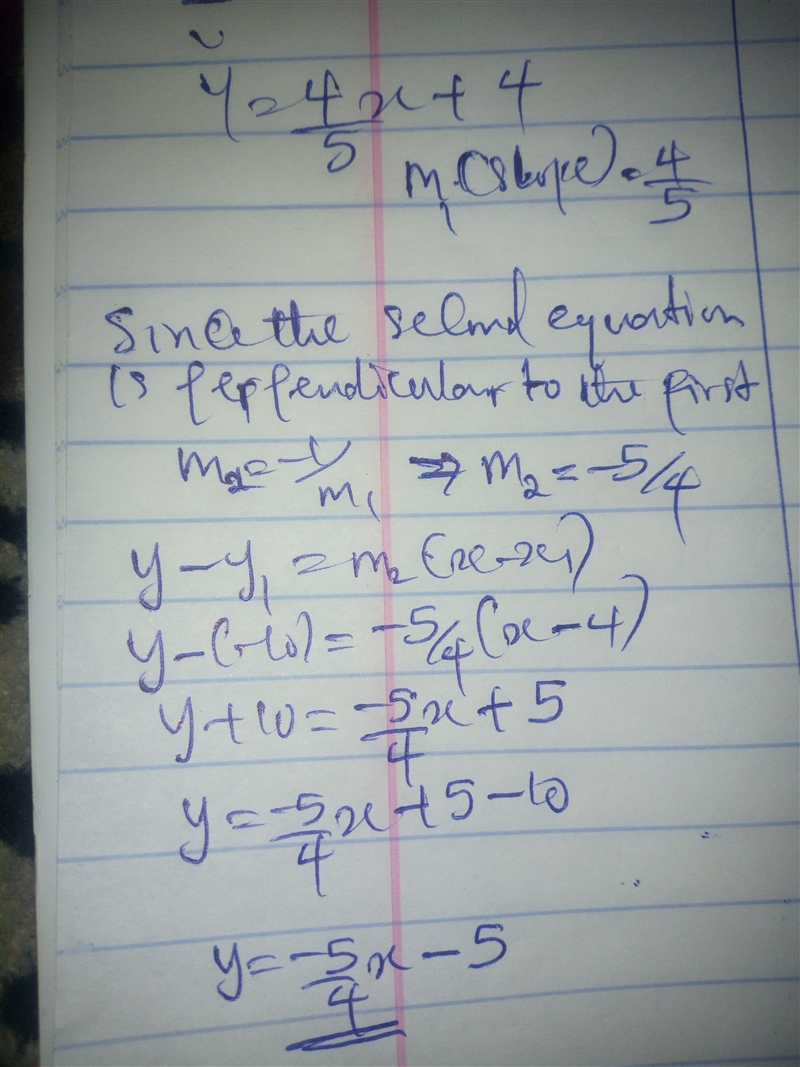 y = 4/5 x + 4
m₁ (slope) = 4/5
Since the second equation
is perpendicular to the first
m₂ = -1/m₁ ⇒ m₂ = -5/4
y - y₁ = m₂ (x - x₁)
y - (-10) = -5/4 (x - 4)
y + 10 = -5/4 x + 5
y = -5/4 x + 5 - 10
y = -5/4 x - 5